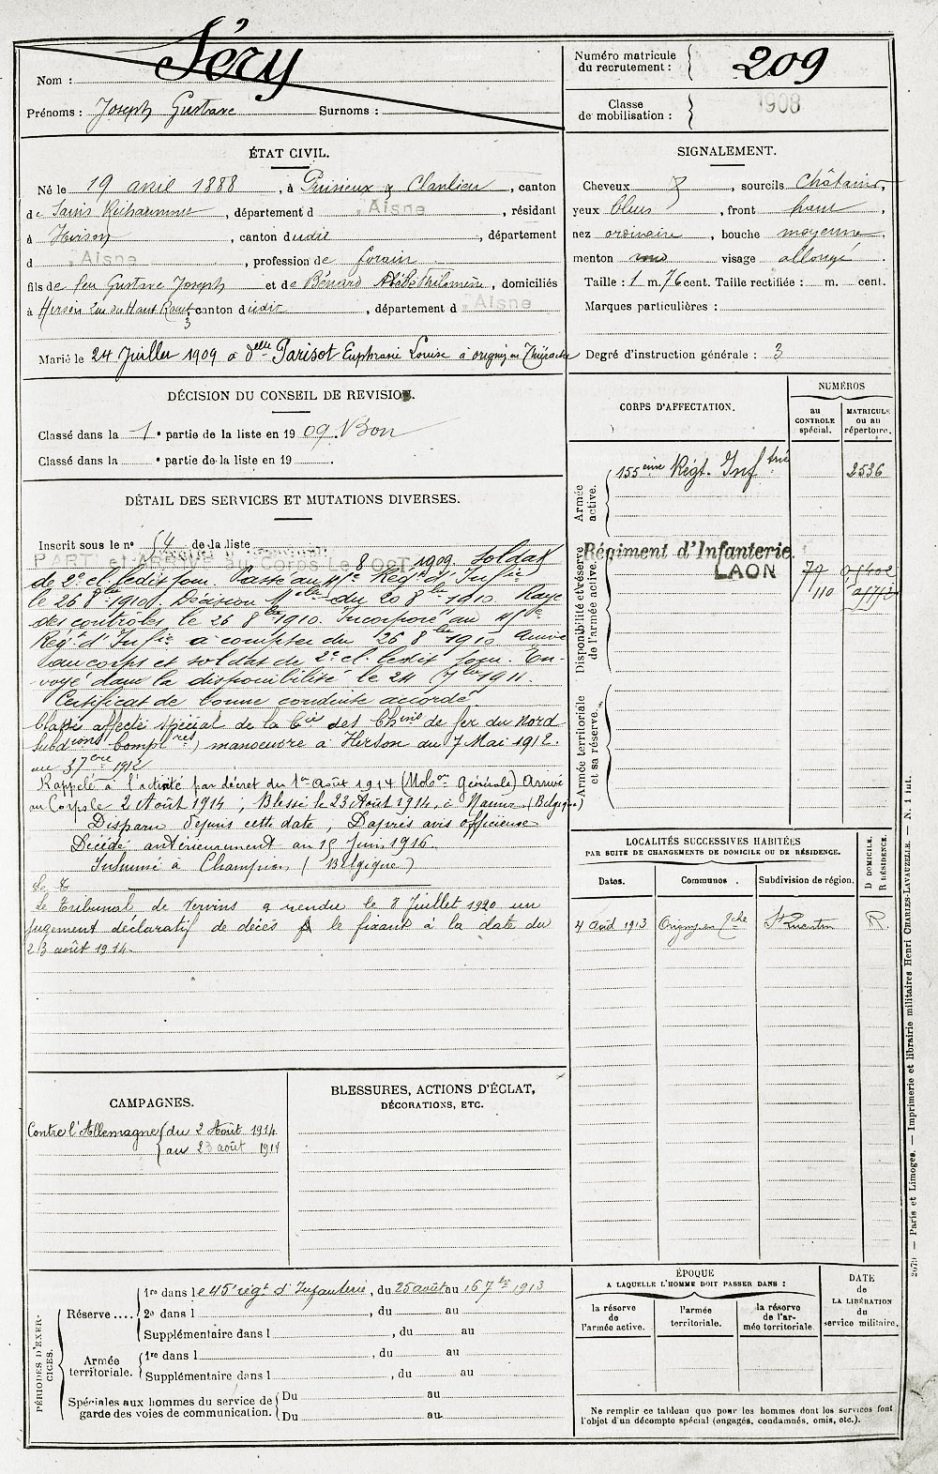 Nom : Séry
Prénoms : Joseph Gustave Surnoms :
Numéro matricule du recrutement : 209
Classe de mobilisation : 1908
ÉTAT CIVIL.
Né le 19 avril 1888, à Puisieux & Clanlieu, canton
de Sains Richaumont, département d Aisne, résidant
à Hirson, canton dudit, département
d Aisne, profession de forain
fils de feu Gustave Joseph et de Bénard Philomène, domiciliés
à Hirson Rue du Haut canton dudit, département d Aisne
3
Marié le 24 Juillet 1909 à delle Parisot Euphrasie Louise à origny en Thiérache
SIGNALEMENT.
Cheveux, sourcils châtains,
yeux bleus, front haut,
nez ordinaire, bouche moyenne,
menton rond visage allongé.
Taille : 1 m. 76 cent. Taille rectifiée : m. cent.
Marques particulières :
Degré d'instruction générale : 3
DÉCISION DU CONSEIL DE REVISION.
Classé dans la 1e partie de la liste en 1909. Bon
Classé dans la e partie de la liste en 19
DÉTAIL DES SERVICES ET MUTATIONS DIVERSES.
Inscrit sous le n° 64 de la liste
PARTI et ARRIVÉ au Corps Le 8 OCT 1909. Soldat
de 2e cl. ledit jour. Passé au 45e Régt d'Infie
le 26 8bre 1910. Décision Melle du 20 8bre 1910. Rayé
des contrôles le 26 8bre 1910. Incorporé au 45e
Régt d'Infie à compter du 26 8bre 1910 arrivé
au corps et soldat de 2e cl. ledit jour. En-
voyé dans la disponibilité le 24 7bre 1911.
Certificat de bonne conduite accordé
Classé affecté spécial de la Cie des Chins de fer du Nord
Subdions Compltres) manoeuvre à Hirson du 7 Mai 1912.
au 1912
Rappelé à l'activité par décret du 1er Août 1914 (Mobon Générale) Arrivé
au Corps le 2 Août 1914 ; Blessé le 23 Août 1914, à Namur (Belgique)
Disparu depuis cette date ; D'après avis officieuse
Décédé antérieurement au 15 Juin 1916.
Inhumé à Champion (Belgique)
Le Tribunal de Vervins a rendu le 8 Juillet 1920 un
jugement déclaratif de décès le fixant à la date du
23 août 1914.
CORPS D'AFFECTATION.
NUMÉROS
au CONTROLE spécial.
MATRICULE ou au répertoire.
Armée active.
155ème Régt. Inftrie 2536
Disponibilité et réserve de l'armée active.
Régiment d'Infanterie.
LAON 79 05402
110
Armée territoriale et sa réserve.
LOCALITÉS SUCCESSIVES HABITÉES
PAR SUITE DE CHANGEMENTS DE DOMICILE OU DE RÉSIDENCE.
Dates. Communes. Subdivision de région. D DOMICILE. R RÉSIDENCE.
4 Août 1913 Origny en Tche St Quentin R.
CAMPAGNES.
Contre l'Allemagne (du 2 Août 1914
au 23 août 1914
BLESSURES, ACTIONS D'ÉCLAT,
DÉCORATIONS, ETC.
PÉRIODES D'EXERCICES.
Réserve....
1re dans le 45e régt d'Infanterie, du 25 août au 16 7bre 1913
2e dans l , du au
Supplémentaire dans l , du au
Armée territoriale.
1re dans l , du au
Supplémentaire dans l , du au
Spéciales aux hommes du service de garde des voies de communication.
Du au
Du au
ÉPOQUE
A LAQUELLE L'HOMME DOIT PASSER DANS :
la réserve de l'armée active.
l'armée territoriale.
la réserve de l'armée territoriale
DATE de LA LIBÉRATION du service militaire.
Ne remplir ce tableau que pour les hommes dont les services font
l'objet d'un décompte spécial (engagés, condamnés, omis, etc.).
2679 — Paris et Limoges. — Imprimerie et librairie militaires Henri CHARLES-LAVAUZELLE. — N. 1 int.